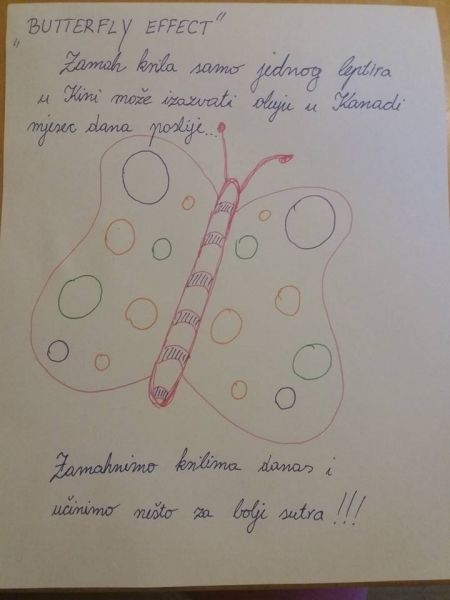 „BUTTERFLY EFFECT”
Zamah krila samo jednog leptira
u Kini može izazvati oluju u Kanadi
mjesec dana poslije...
Zamahnimo krilima danas i
učinimo nešto za bolji sutra!!!